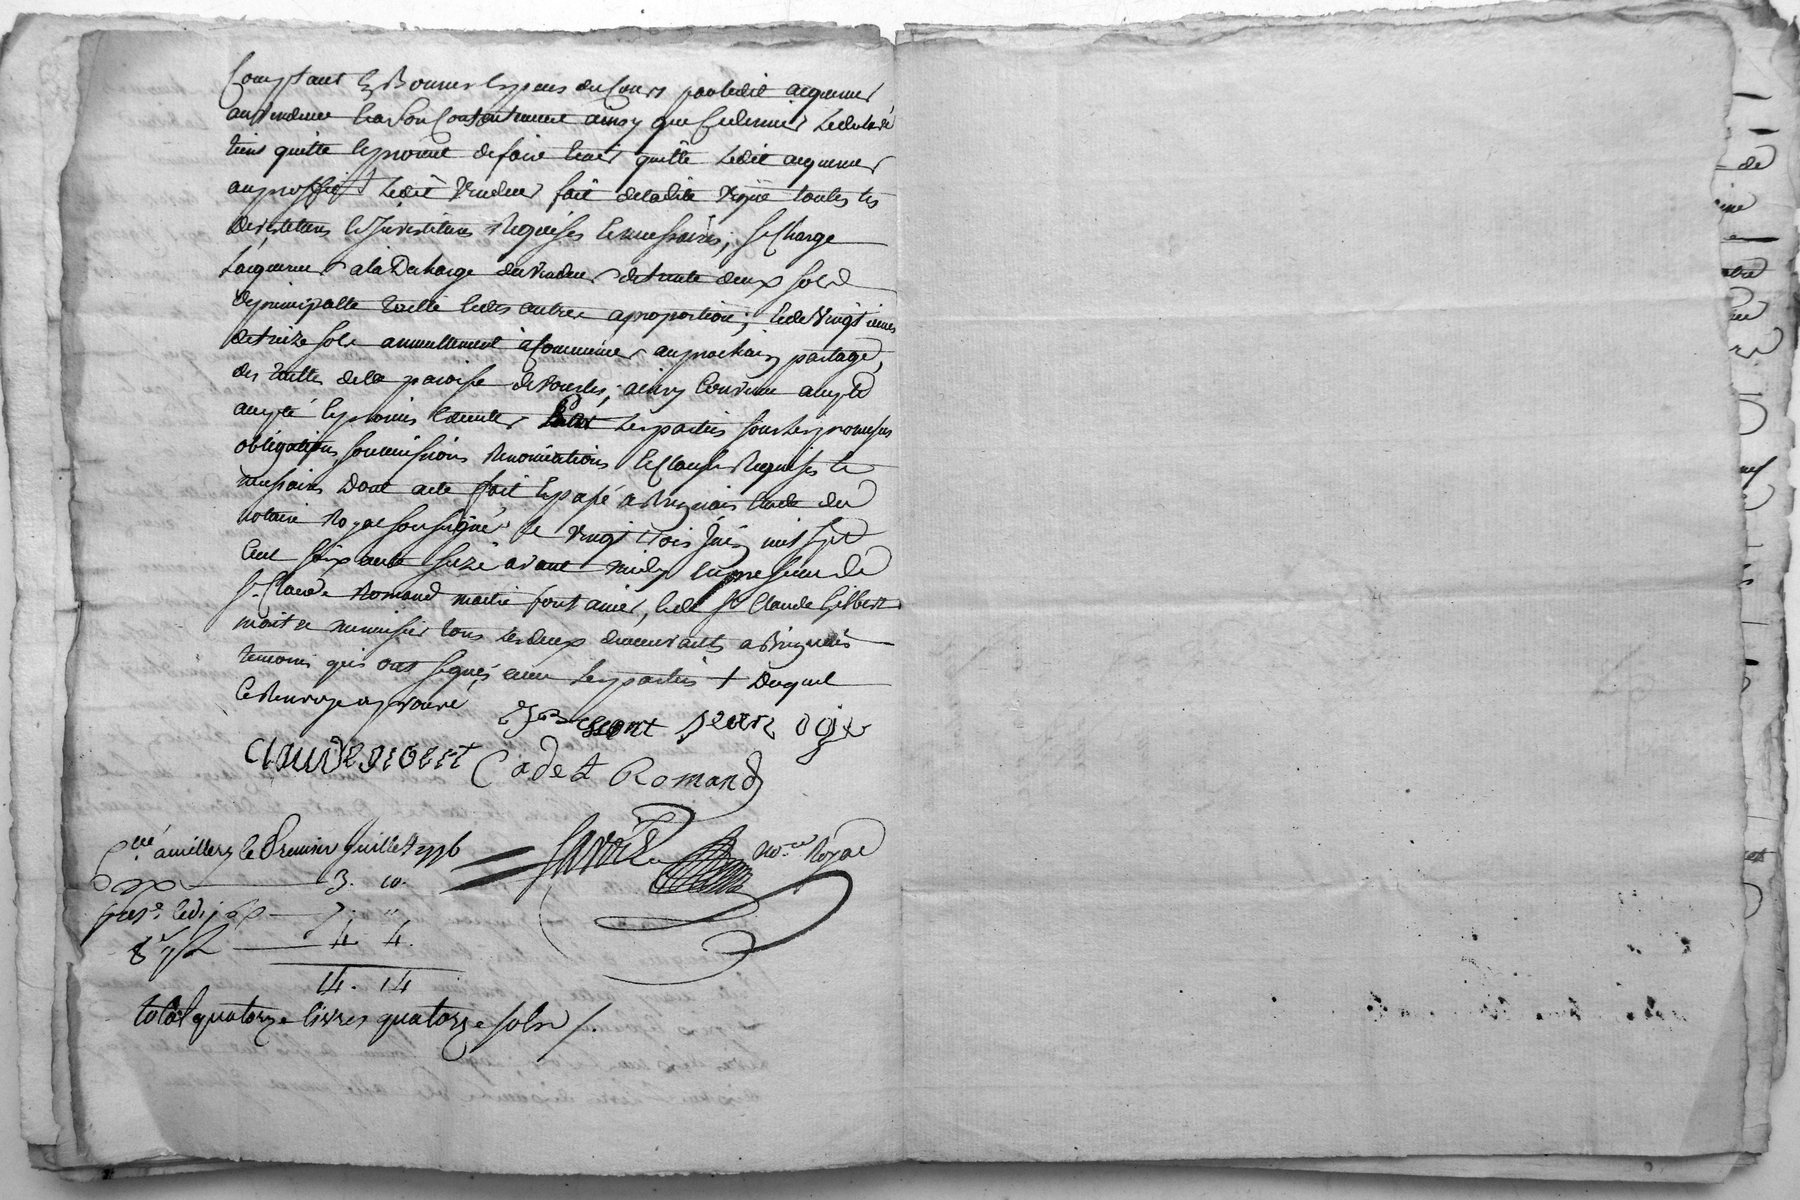 Comptant & Bonnes Especes du Cours par ledit acquereur
au vendeur & a son Contentement ainsy que ce dernier le declare
tient quitte & promet de faire tenir quitte ledit acquereur
au proffit ledit Vendeur fait de ladite Vigne toutes les
devestitures & Investitures Requises & necessaires, se Charge
L'acquereur a la Decharge du Vendeur de trente deux sols
de principalle taille & des autres a proportion, & de Vingtiemes
de treize sols annuellement a Commencer au prochain partage
des tailles de la paroisse de Vourles, ainsy Convenu accepté
accepté & promis executer Par les parties sous les promesses
obligations, soumissions Renonciations & Clauses Requises &
necessaires Dont acte fait & passé a Brignais Etude du
notaire Royal soussigné le vingt trois Juin mil sept
Cent soixante seize avant midy en presence de
Sr Claude Romand maitre fontanier, & de Sr Claude Gilbert
maitre menuisier tous les deux demeurants a Brignais
temoins qui ont signés avec les parties + Duquel
Ce Renvoy approuvé
Jean ogier
Claude gilbert Cadet Romand
not.re Royal
C.llé a millery le Premier Juillet 1776
3. 10.
7. "
8 s p L 4. 4.
14. 14
total quatorze livres quatorze sols /.